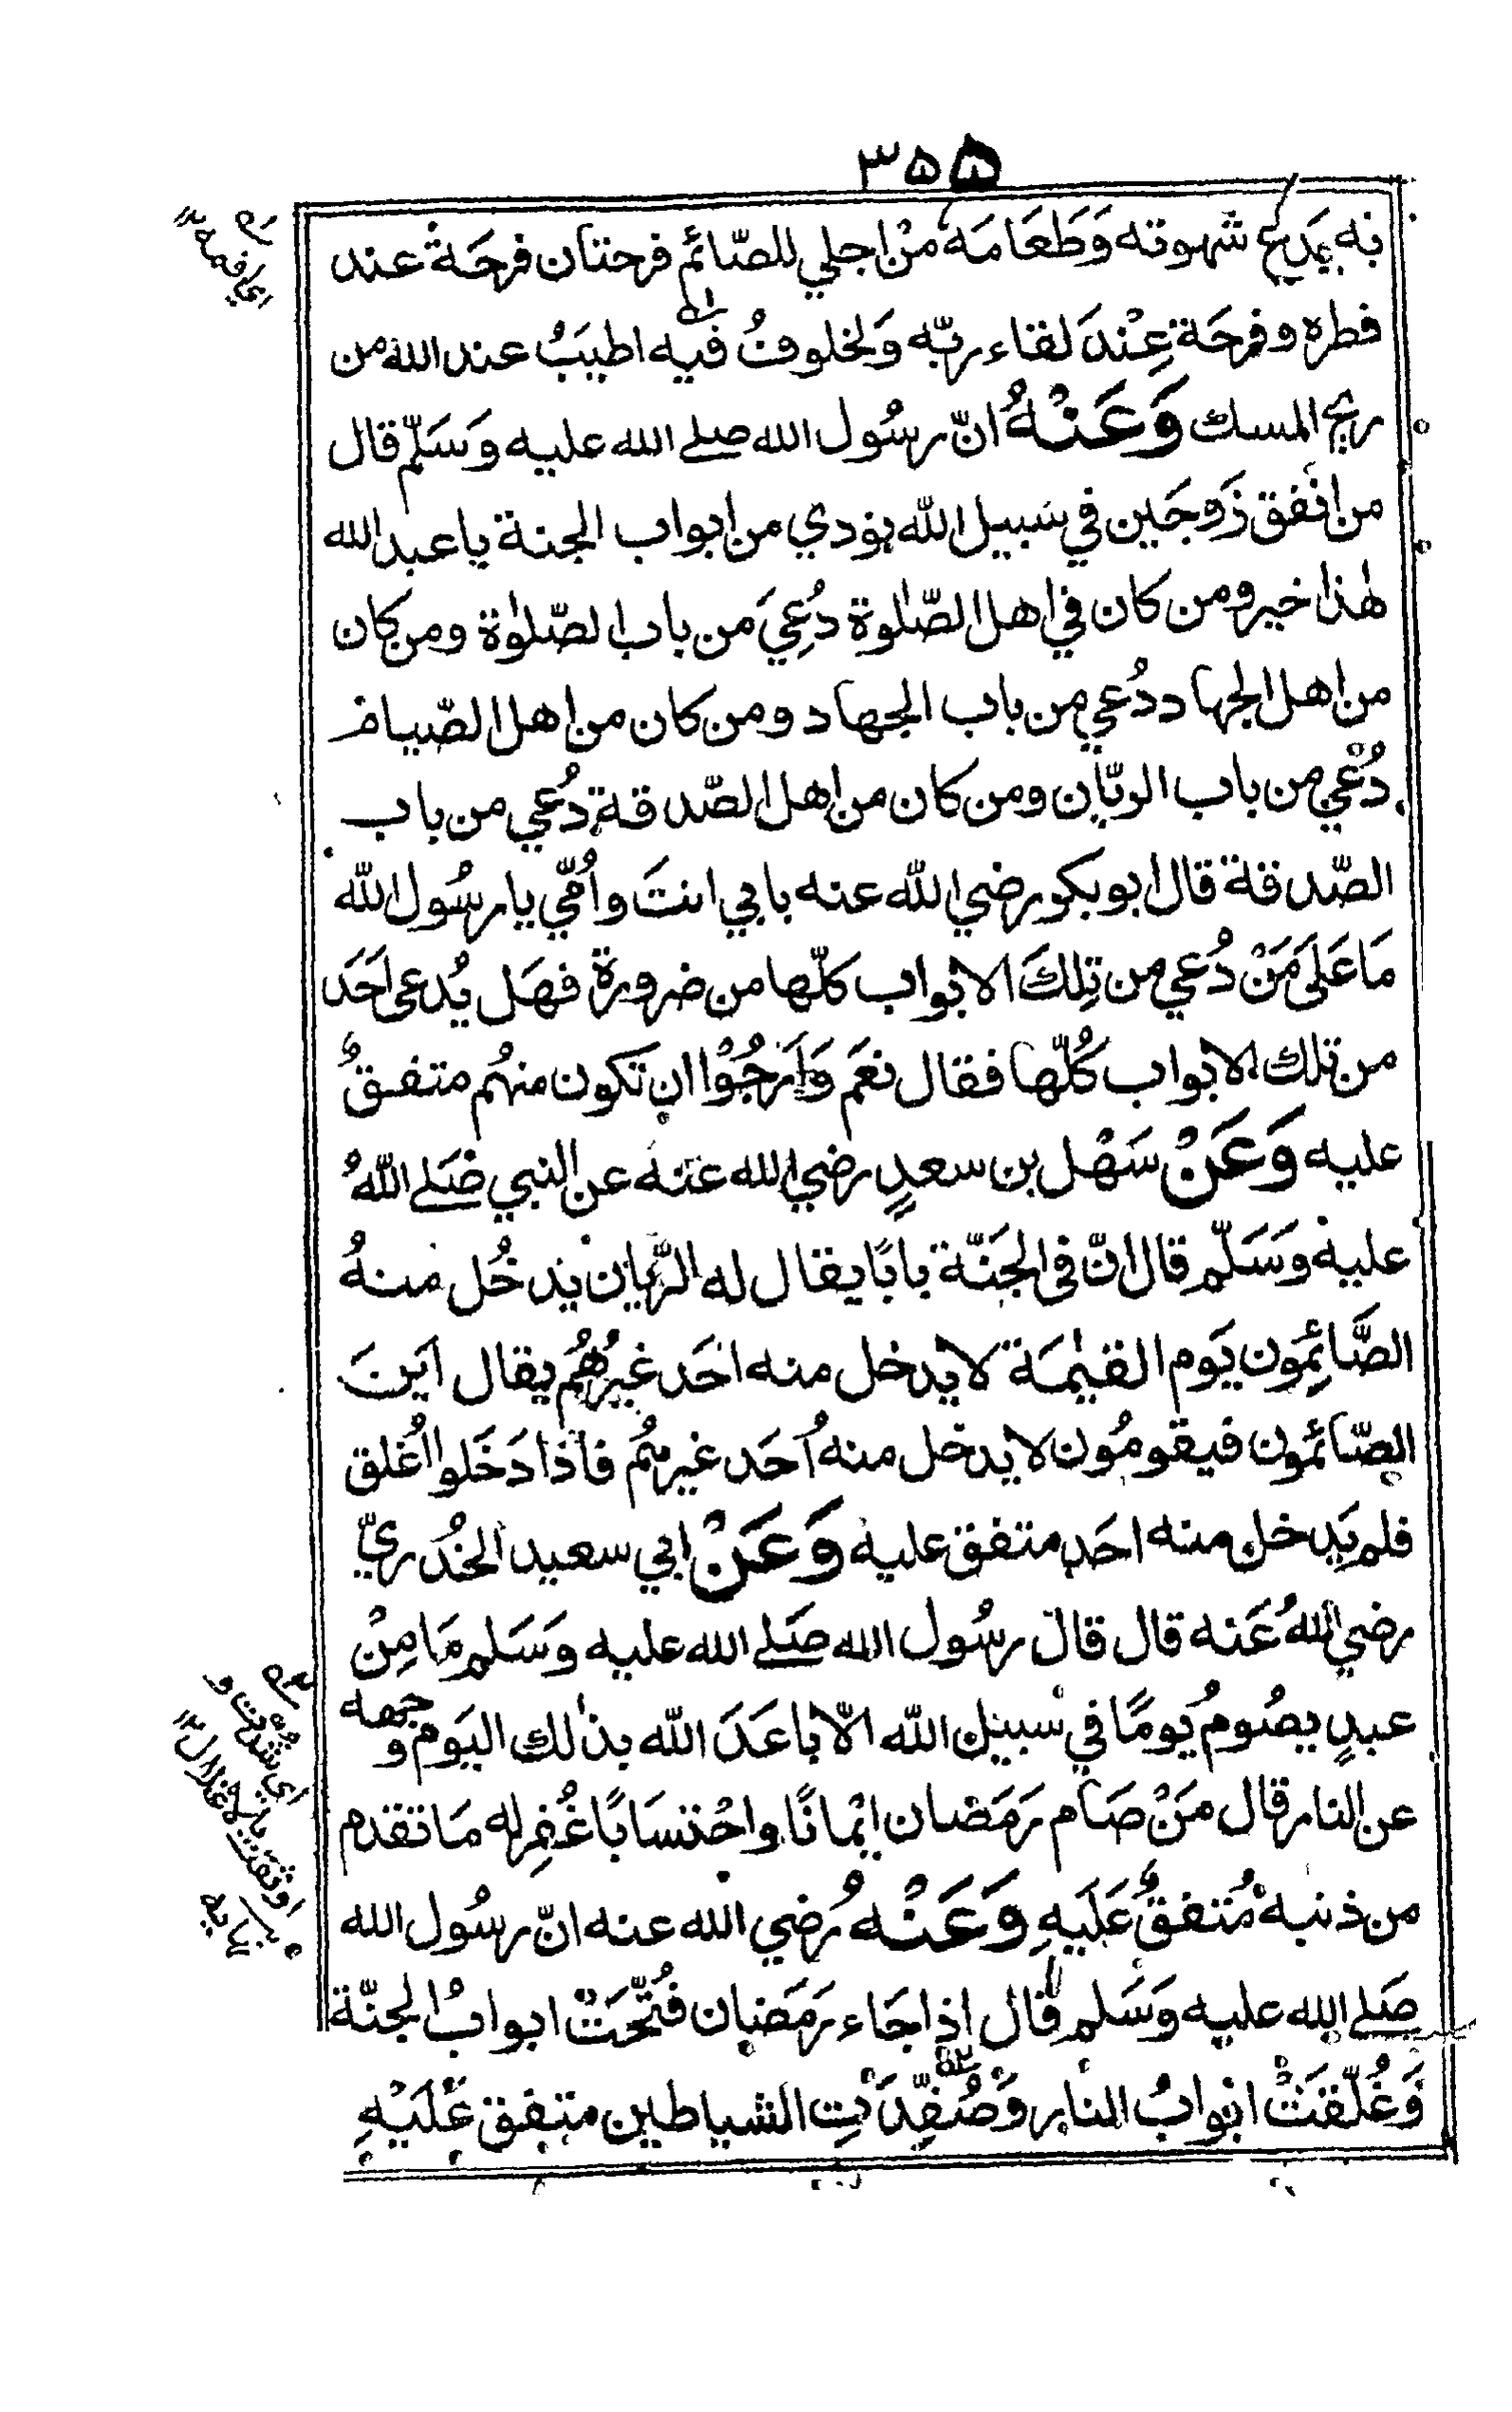 ٣٥٥
به يدع شهوته وَطَعَامَه منْ اجلي للصّائم فرحتان فرحَة عند
فطره وفرحَة عِنْدَ لقاء ربّه وَلخلوفُ فيه اطيبُ عند الله من
ريح المسك وَعَنْهُ انّ رسُول الله صلے الله عليه وَسَلّم قال
من انفق زَوجَين في سَبيل الله نودي من ابواب الجنة يا عبد الله
هٰذا خير ومن كان في اهل الصّلٰوة دُعِيَ من باب الصّلوٰة ومن كان
من اهل الجهاد دُعي من باب الجهاد ومن كان من اهل الصّيام
دُعْي من باب الريّان ومن كان من اهل الصّدقة دُعي من باب
الصّدقة قال ابو بكر رضي الله عنه بابي انتَ واُمّي يا رسُول الله
مَا عَلَى مَنْ دُعي من تِلكَ الابواب كلّها من ضرورة فهَل يُدعى احَد
من تلك الابواب كُلّها فقال نعَم وَاَرجُوْا ان تكون منهُم متفقٌ
عليه وَعَنْ سَهْل بن سعدٍ رضي الله عنه عن النبي صَلے اللهُ
عليه وسَلّم قال انّ فى الجَنّة بابًا يقال له الرّيان يدخُل منهُ
الصَّائِمُون يَوم القيٰمَة لا يدخل منه احَد غيرُهُم يقال اَينَ
الصّائمون فيقومُون لا يدخل منه اُحَد غيرهُم فاذا دَخَلوا اُغلق
فلم يَدخل منه احَد متفق عليه وَعَنْ ابي سعيد الخُدريّ
رضي اللهُ عَنه قال قال رسُول الله صَلے الله عليه وَسَلم مَا مِنْ
عبدٍ يصُومُ يومًا في سبيل الله الّا باعَدَ الله بذٰلك اليَوم وجهه
عن النار قال مَنْ صَام رَمَضان ايْمانًا واحْتسَابًا غُفِر له مَا تقدم
من ذنبه مُتفقٌ عَلَيهِ وَعَنْه رضي الله عنه انّ رسُول الله
صَلے الله عليه وَسَلم قال اذا جَاء رَمَضان فُتّحَتْ ابوابُ الجنّة
وَغُلّقتْ ابْوابُ النار وَصُفِّدَتِ الشياطين متفق عَلَيْهِ
اي فمه ١٢